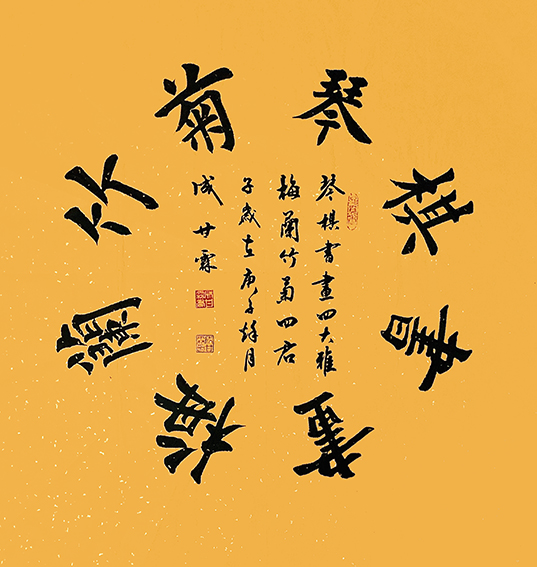 琴棋書畫梅蘭竹菊
琴棋書畫四大雅
梅蘭竹菊四君
子歲在庚子月
成甘霖